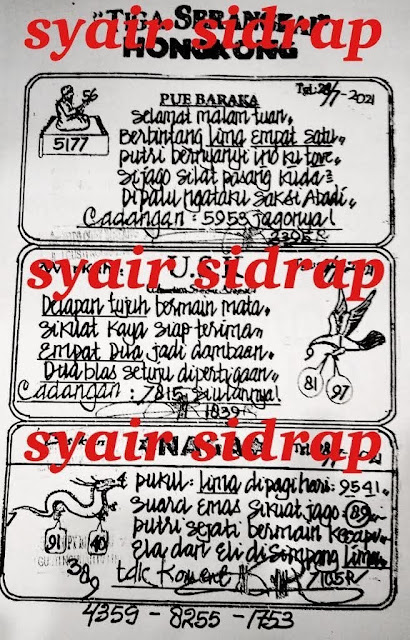 "TIGA SERANGKAI"
HONGKONG
syair sidrap
Tgl: 28/7-2021
PUE BARAKA
56
5177
Selamat malam tuan,,
Berbintang lima empat satu,,
putri bernyanyi
Si jago silat pasang kuda²
Di palu ngataku Saksi Abadi,,
Cadangan : 5953 jagonya!
syair sidrap
Delapan tujuh bermain mata,
Sikuat Kaya siap terima,,
Empat Dita jadi dambaan.
Dua blas setuju dipertigaan,,
Cadangan : 7815 siulannya!
1839
81
97
syair sidrap
pukul : lima dipagi hari: 9541,,
Suara Emas sikuat jago 89
putri sejati bermain Kecapi
Ela dan Eli di Simpang Lima,
tdk Koment
7105R
91
40
389
4359 - 8255 - 1753